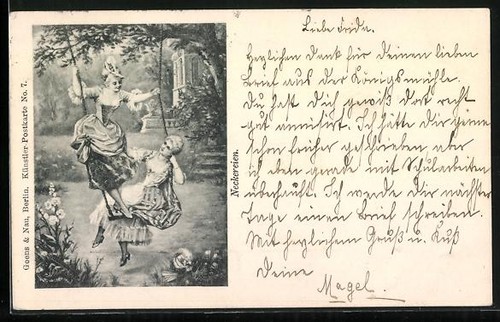 Goens & Nau, Berlin. Künstler Postkarte No. 7.
Neckereien.
Liebe Frida.
Herzlichen Dank für Deinen lieben
Brief aus der Königsmühle.
Du hast Dich gewiß dort recht
gut amüsirt. Ich hätte Dir gerne
schon früher geschrieben, aber
ich eben gerade mit Schularbeiten
überhäuft. Ich werde Dir nächster
Tage einen Brief schreiben.
Mit herzlichem Gruß u. Kuß
Deine
Magel.